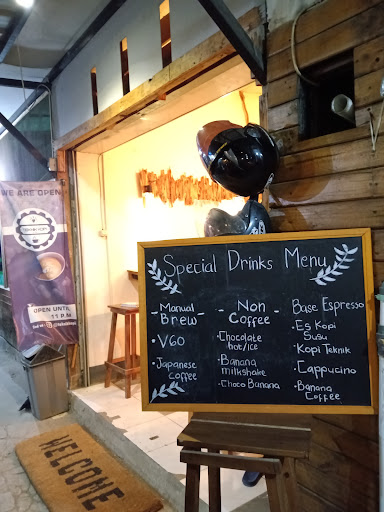 WE ARE OPEN
OPEN UNTIL
11 P.M
Special Drinks Menu
- Manual Brew -
• V60
• Japanese
Coffee
- Non
Coffee -
• Chocolate
hot/ice
• Banana
milkshake
• Choco Banana
Base Espresso
• Es Kopi
Susu
• Kopi Teknik
• Cappucino
• Banana
Coffee
WELCOME